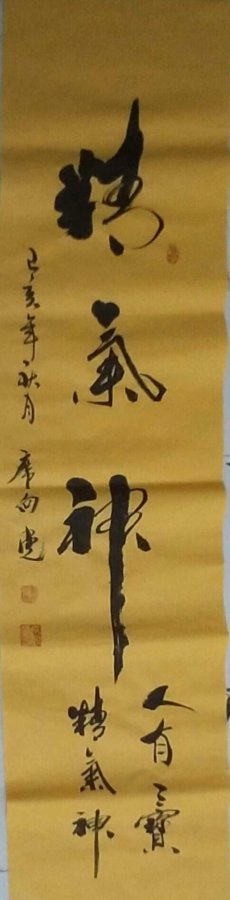 精氣神
人有三寶
精氣神
己亥年秋月
席向